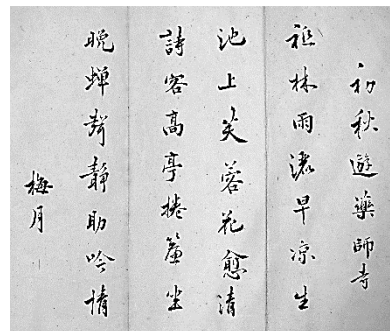 初秋遊藥師寺
祗林雨濃早凉生
池上芙蓉花愈清
詩客高亭捲簾坐
晩蝉聲静助吟情
梅月